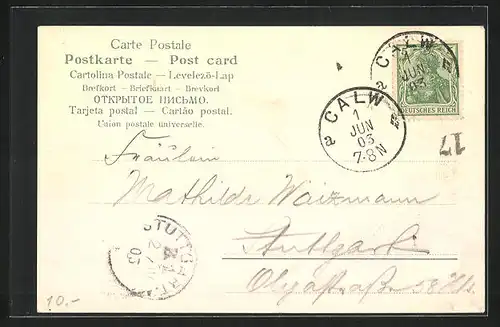 Carte Postale
Postkarte — Post card
Cartolina Postale — Levelező-Lap
Brefkort — Briefkaart — Brevkort
ОТКРЫТОЕ ПИСЬМО.
Tarjeta postal — Cartão postal.
Union postale universelle.
CALW
1
JUN
03
DEUTSCHES REICH
CALW
1
JUN
03
7-8N
17
Fräulein
Mathilde Waizmann
Stuttgart
Olgastraße 58
STUTTGART
03
10.-